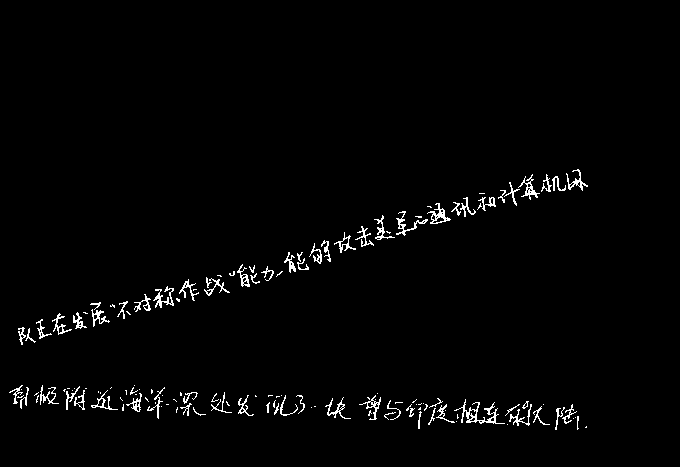 队正在发展“不对称作战”能力,能够攻击美军心通讯和计算机网
南极附近海洋深处发现了一块曾与印度相连的大陆.